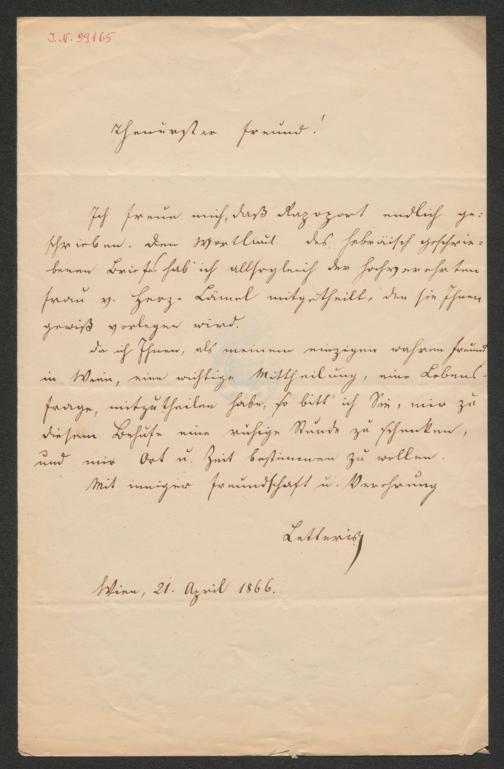 J.N. 99165
Theuerster Freund!
Ich freue mich, daß Rapoport endlich ge-
schrieben. Den Wortlaut des hebräisch geschrie-
benen Briefs hab' ich allsogleich der hochverehrten
Frau v. Herz-Lämel mitgetheilt, den sie Ihnen
gewiß vorlegen wird.
Da ich Ihnen, als meinem einzigen wahren Freund
in Wien, eine wichtige Mittheilung, eine Lebens-
frage, mitzutheilen habe, so bitt' ich Sie, mir zu
diesem Behufe eine ruhige Stunde zu schenken,
und mir Ort u. Zeit bestimmen zu wollen.
Mit inniger Freundschaft u. Verehrung
Letteris
Wien, 21. April 1866.